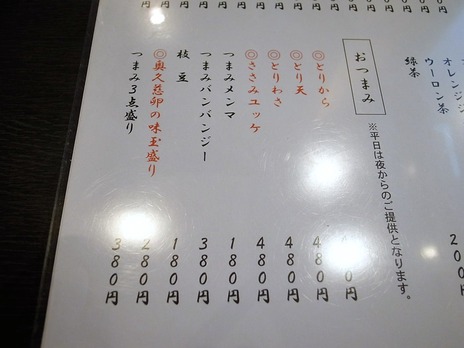 オレンジ
ウーロン茶
緑茶
おつまみ
※平日は夜からのご提供となります。
◎とりから 80円
◎とり天 480円
◎とりわさ 480円
◎ささみユッケ 480円
つまみメンマ 180円
つまみバンバンジー 380円
枝豆 180円
◎奥久慈卵の味玉盛り 280円
つまみ3点盛り 380円